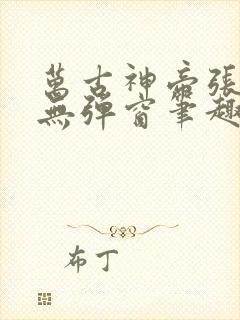 萬古神帝張
無彈窗筆趣
布丁